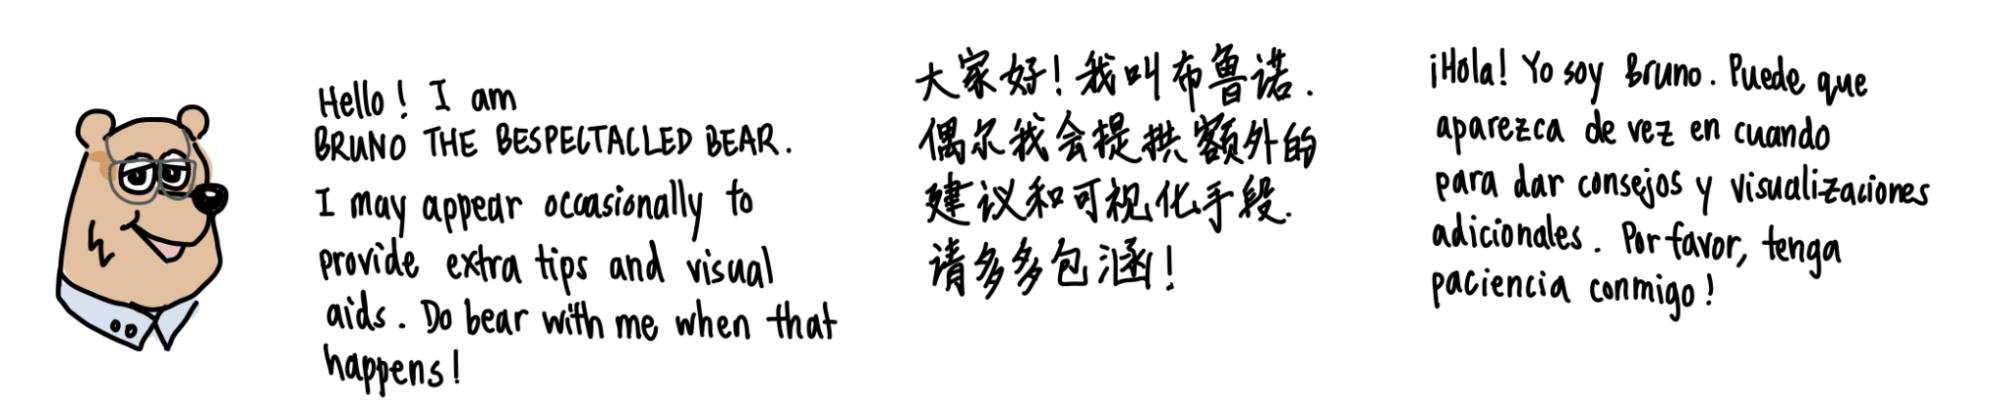 Hello! I am
BRUNO THE BESPECTACLED BEAR.
I may appear occasionally to
provide extra tips and visual
aids. Do bear with me when that
happens!
大家好!我叫布鲁诺.
偶尔我会提拱额外的
建议和可视化手段.
请多多包涵!
¡Hola! Yo soy Bruno. Puede que
aparezca de vez en cuando
para dar consejos y visualizaciones
adicionales. Por favor, tenga
paciencia conmigo!